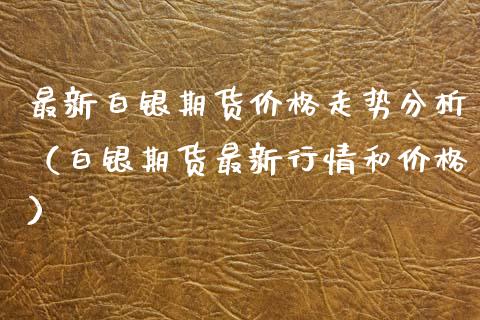 最新白银期货价格走势分析
（白银期货最新行情和价格
）